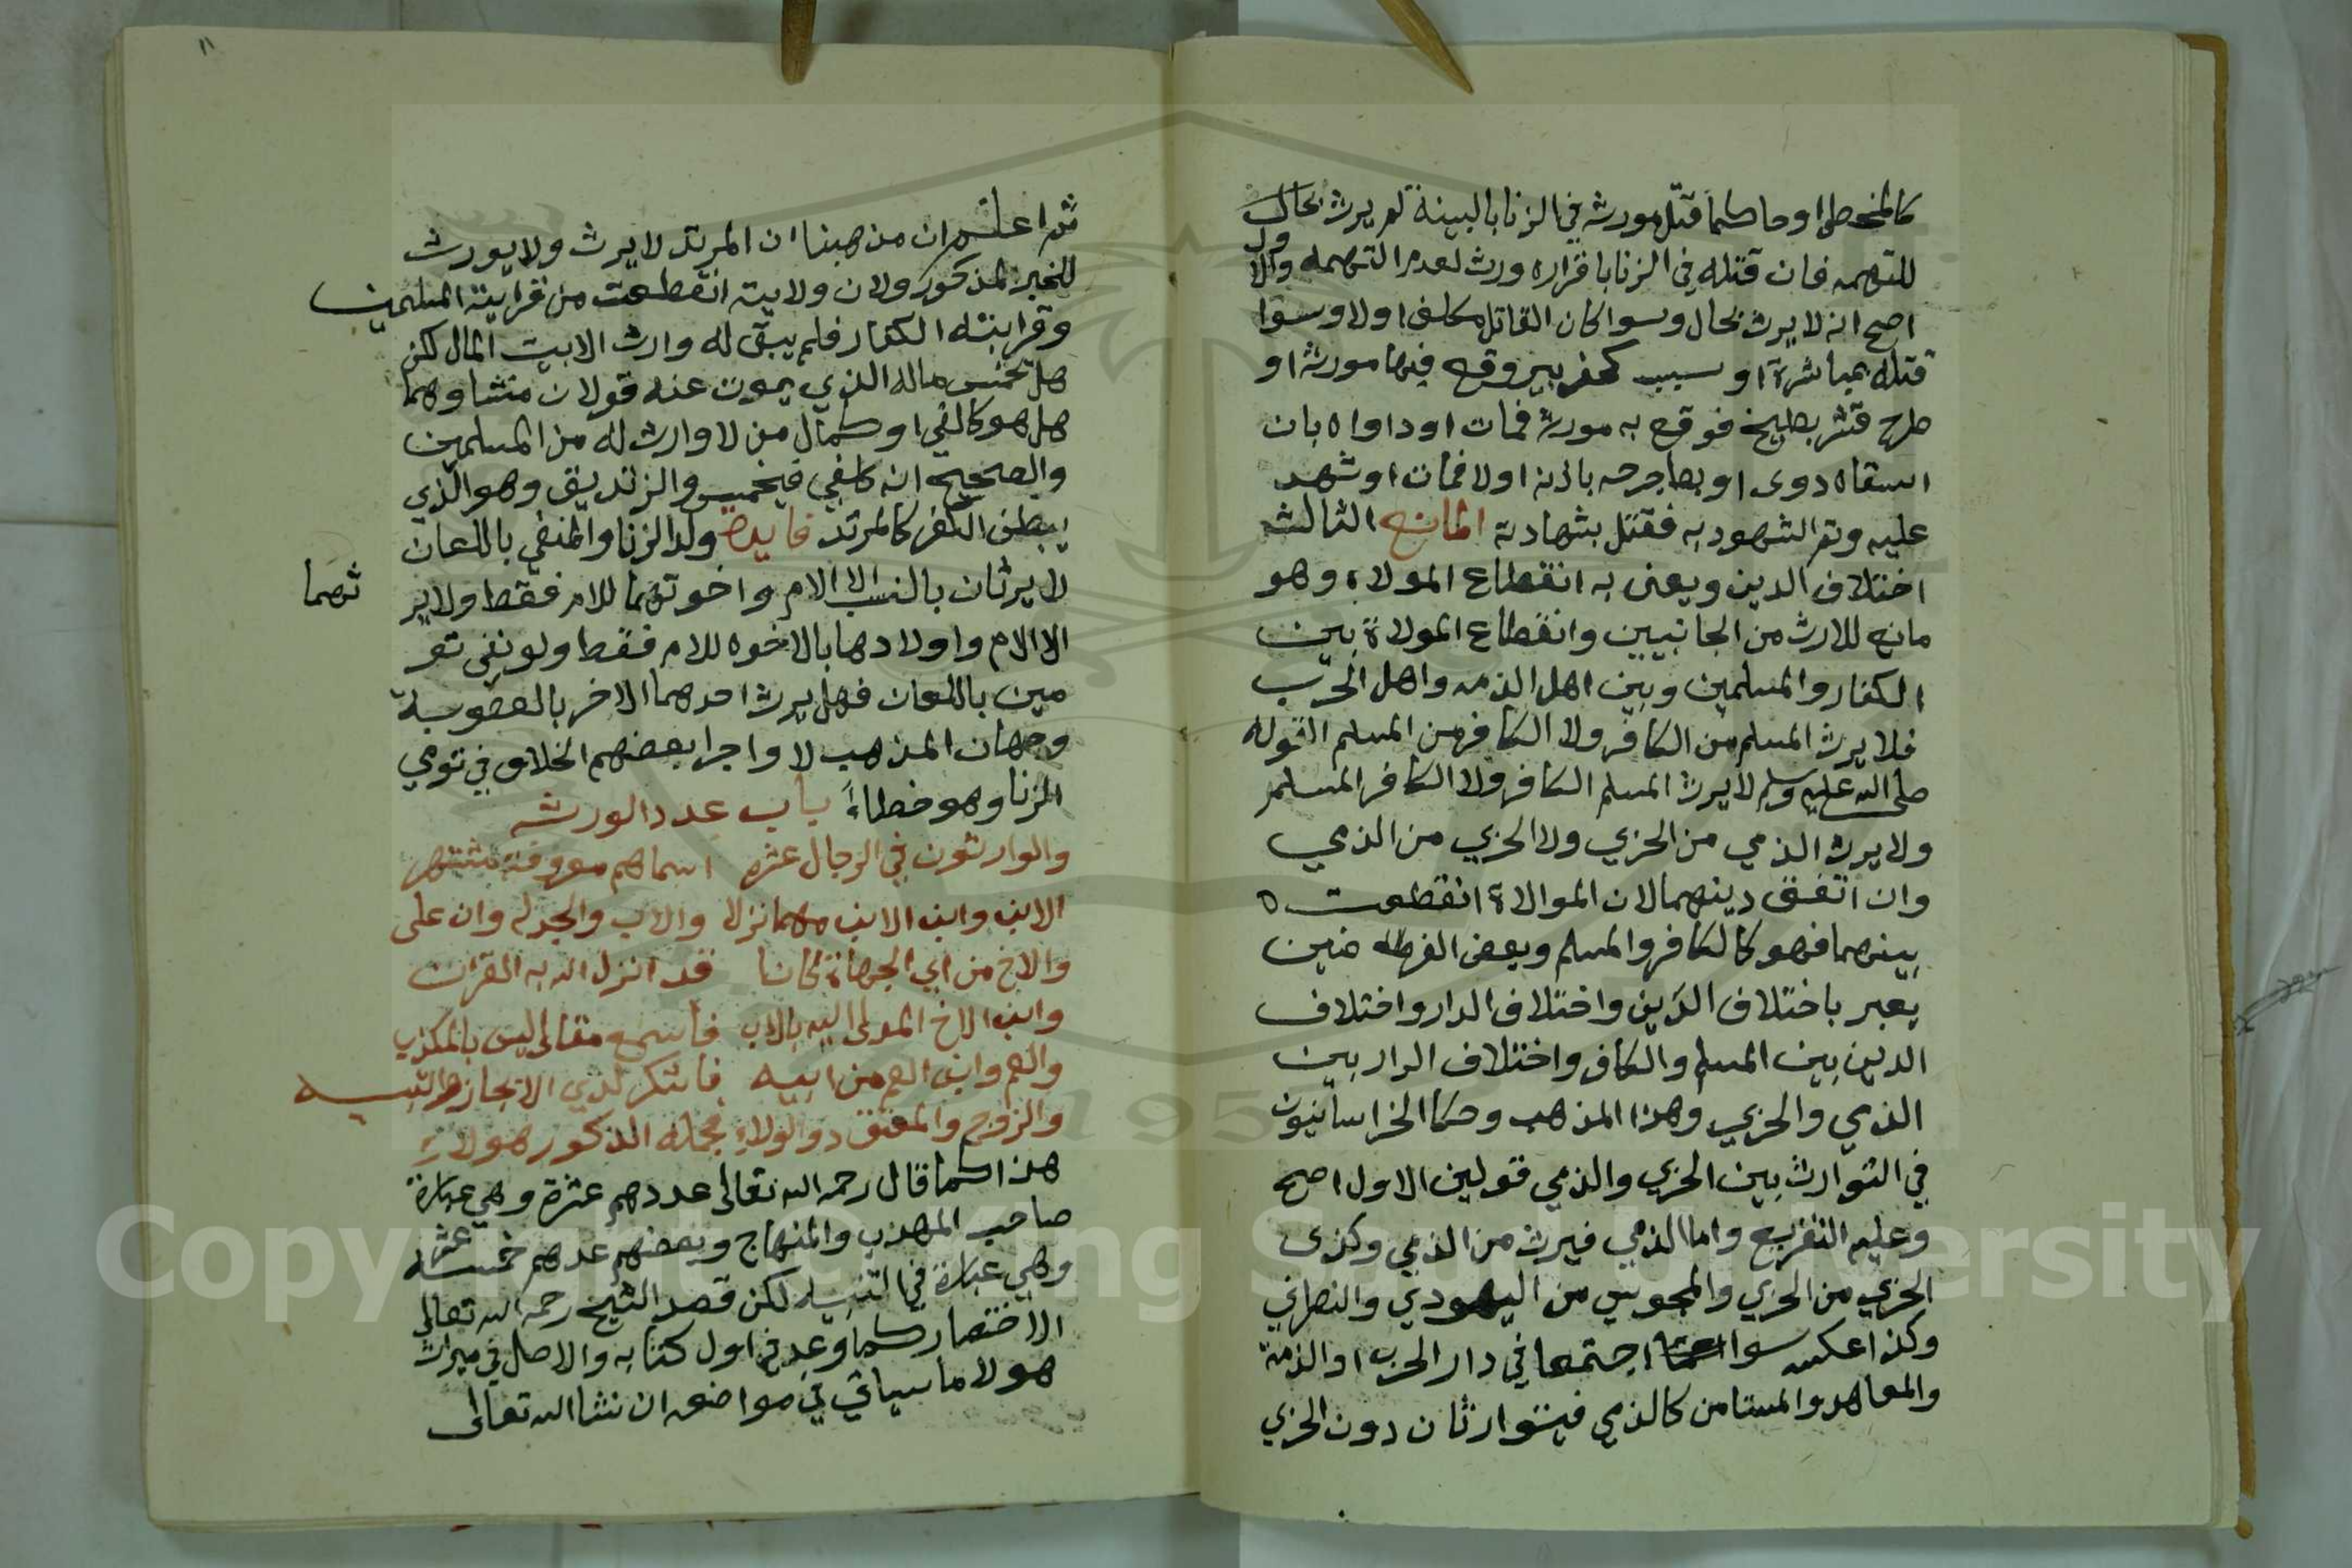 كالمخطي او حاكما قتل مورثه في الزنا بالبينة لم يرث بحال
للتهمه فان قتله في الزنا باقراره ورث لعدم التهمه والاول
اصح انه لا يرث بحال وسوا كان القاتل مكلف اولا وسوا
قتله بمباشرة او سبب كحفر بير وقع فيها مورثه او
طرح قشر بطيخ فوقع به مورثه فمات او داواه بان
اسقاه دوى او بط جرحه باذنه اولا فمات او شهد
عليه وتم الشهود به فقتل بشهادته المانع الثالث
اختلاف الدين ويعنى به انقطاع الموالاة وهو
مانع للارث من الجانبين وانقطاع الموالاة بين
الكفار والمسلمين وبين اهل الذمه واهل الحرب
فلا يرث المسلم من الكافر ولا الكافر من المسلم لقوله
صلى الله عليه وسلم لا يرث المسلم الكافر ولا الكافر المسلم
ولا يرث الذمي من الحربي ولا الحربي من الذمي
وان اتفق دينهما لان الموالاة انقطعت
بينهما فهو كالكافر والمسلم وبعض الفرضيين
يعبر باختلاف الدين واختلاف الدار واختلاف
الدين بين المسلم والكافر واختلاف الدار بين
الذمي والحربي وهذا المذهب وحكا الخراسانيون
في التوارث بين الحربي والذمي قولين الاول اصح
وعليه التفريع واما الذمي فيرث من الذمي وكذى
الحربي من الحربي والمجوسي من اليهودي والنصراني
وكذا عكسه سوا اجتمعا في دار الحرب او الذمة
والمعاهد والمستامن كالذمي فيتوارثان دون الحربي
١١
ثم اعلم ان مذهبنا ان المرتد لا يرث ولا يورث
للخبر المذكور ولان ولايته انقطعت من قرابته المسلمين
وقرابته الكفار فلم يبقى له وارث الا بيت المال لكن
هل يخمس ماله الذي يموت عنه قولان منشاوهما
هل هو كالفي او كمال من لا وارث له من المسلمين
والصحيح انه كالفي فيخمس والزنديق وهو الذي
يبطن الكفر كالمرتد فايدة ولد الزنا والمنفي باللعان
لا يرثان بالنسب الا الام واخوتهما للام فقط ولا ير
ثهما
الا الام واولادها بالاخوه للام فقط ولو نفى تو
مين باللعان فهل يرث احدهما الاخر بالعصوبة
وجهان المذهب لا واجرا بعضهم الخلاف في تومي
الزنا وهو خطاءً باب عدد الورثه
والوارثون في الرجال عشره اسماهم معروفة مشتهره
الابن وابن الابن مهما نزلا والاب والجد له وان على
والاخ من اي الجهاة كانا قد انزل الله به القرانا
وابن الاخ المدلى اليه بالاب فاسمع مقالا ليس بالمكذب
والعم وابن العم من ابيه فاشكر لذي الايجاز والتنبيه
والزوج والمعتق ذو الولاء فجملة الذكور هولاء
هذا كما قال رحمه الله تعالى عددهم عشرة وهي عبارة
صاحب المهذب والمنهاج وبعضهم عدهم خمسة عشر
وهي عبارة في التنبيه لكن قصد الشيخ رحمه الله تعالى
الاختصار كما وعد في اول كتابه والاصل في ميراث
هولا ما سياتي في مواضعه ان شا الله تعالى
Copyright © King Saud University
195